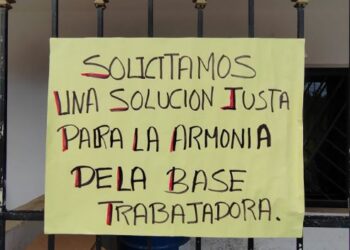 SOLICITAMOS
UNA SOLUCION JUSTA
PARA LA ARMONIA
DE LA BASE
TRABAJADORA.